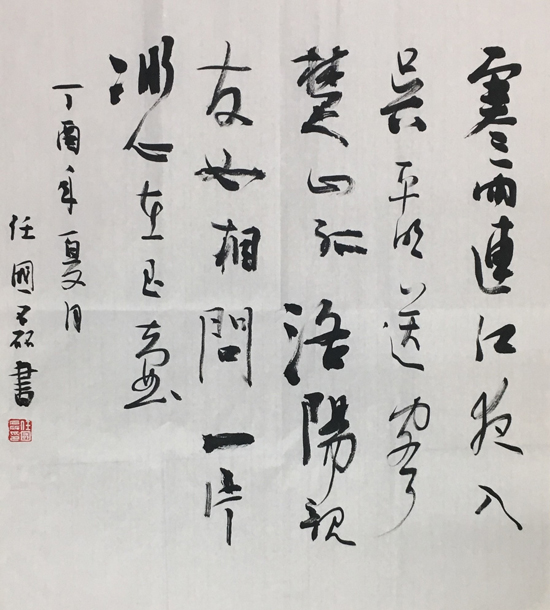 寒雨連江夜入
吳平明送客
楚山孤洛陽親
友如相問一片
冰心在玉壺
丁酉年夏月
任國書